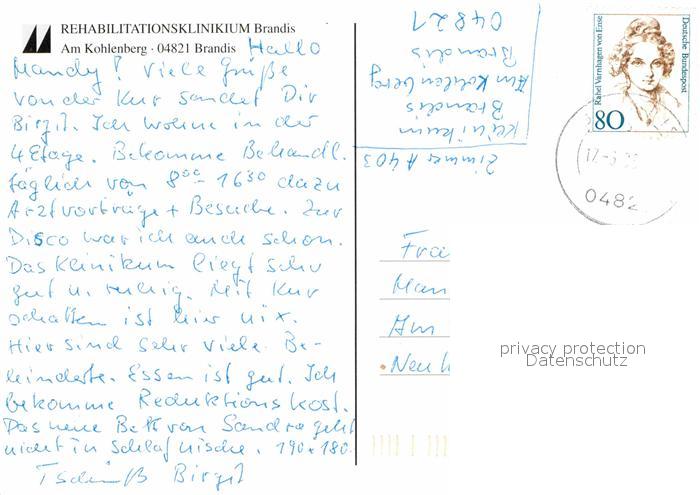 REHABILITATIONSKLINIKIUM Brandis
Am Kohlenberg · 04821 Brandis
Hallo
Mandy! Viele Grüße
von der Kur sendet Dir
Birgit. Ich wohne in der
4 Etage. Bekomme Behandl.
täglich von 8⁰⁰ - 16³⁰ dazu
Arztvorträge + Besuche. Zur
Disco war ich auch schon.
Das Klinikum liegt sehr
gut u. ruhig. Mit Kur
schatten ist hier nix.
Hier sind sehr viele Be-
hinderte. Essen ist gut. Ich
bekomme Reduktionskost.
Das neue Bett von Sandra geht
nicht in Schlafnische. 190 x 180.
Tschüß Birgit
Zimmer A 403
Klinikum
Brandis
Am Kohlenberg
Brandis
04821
Rahel Varnhagen von Ense
Deutsche Bundespost
80
0482
Frau
Man
Am
Neu
privacy protection
Datenschutz